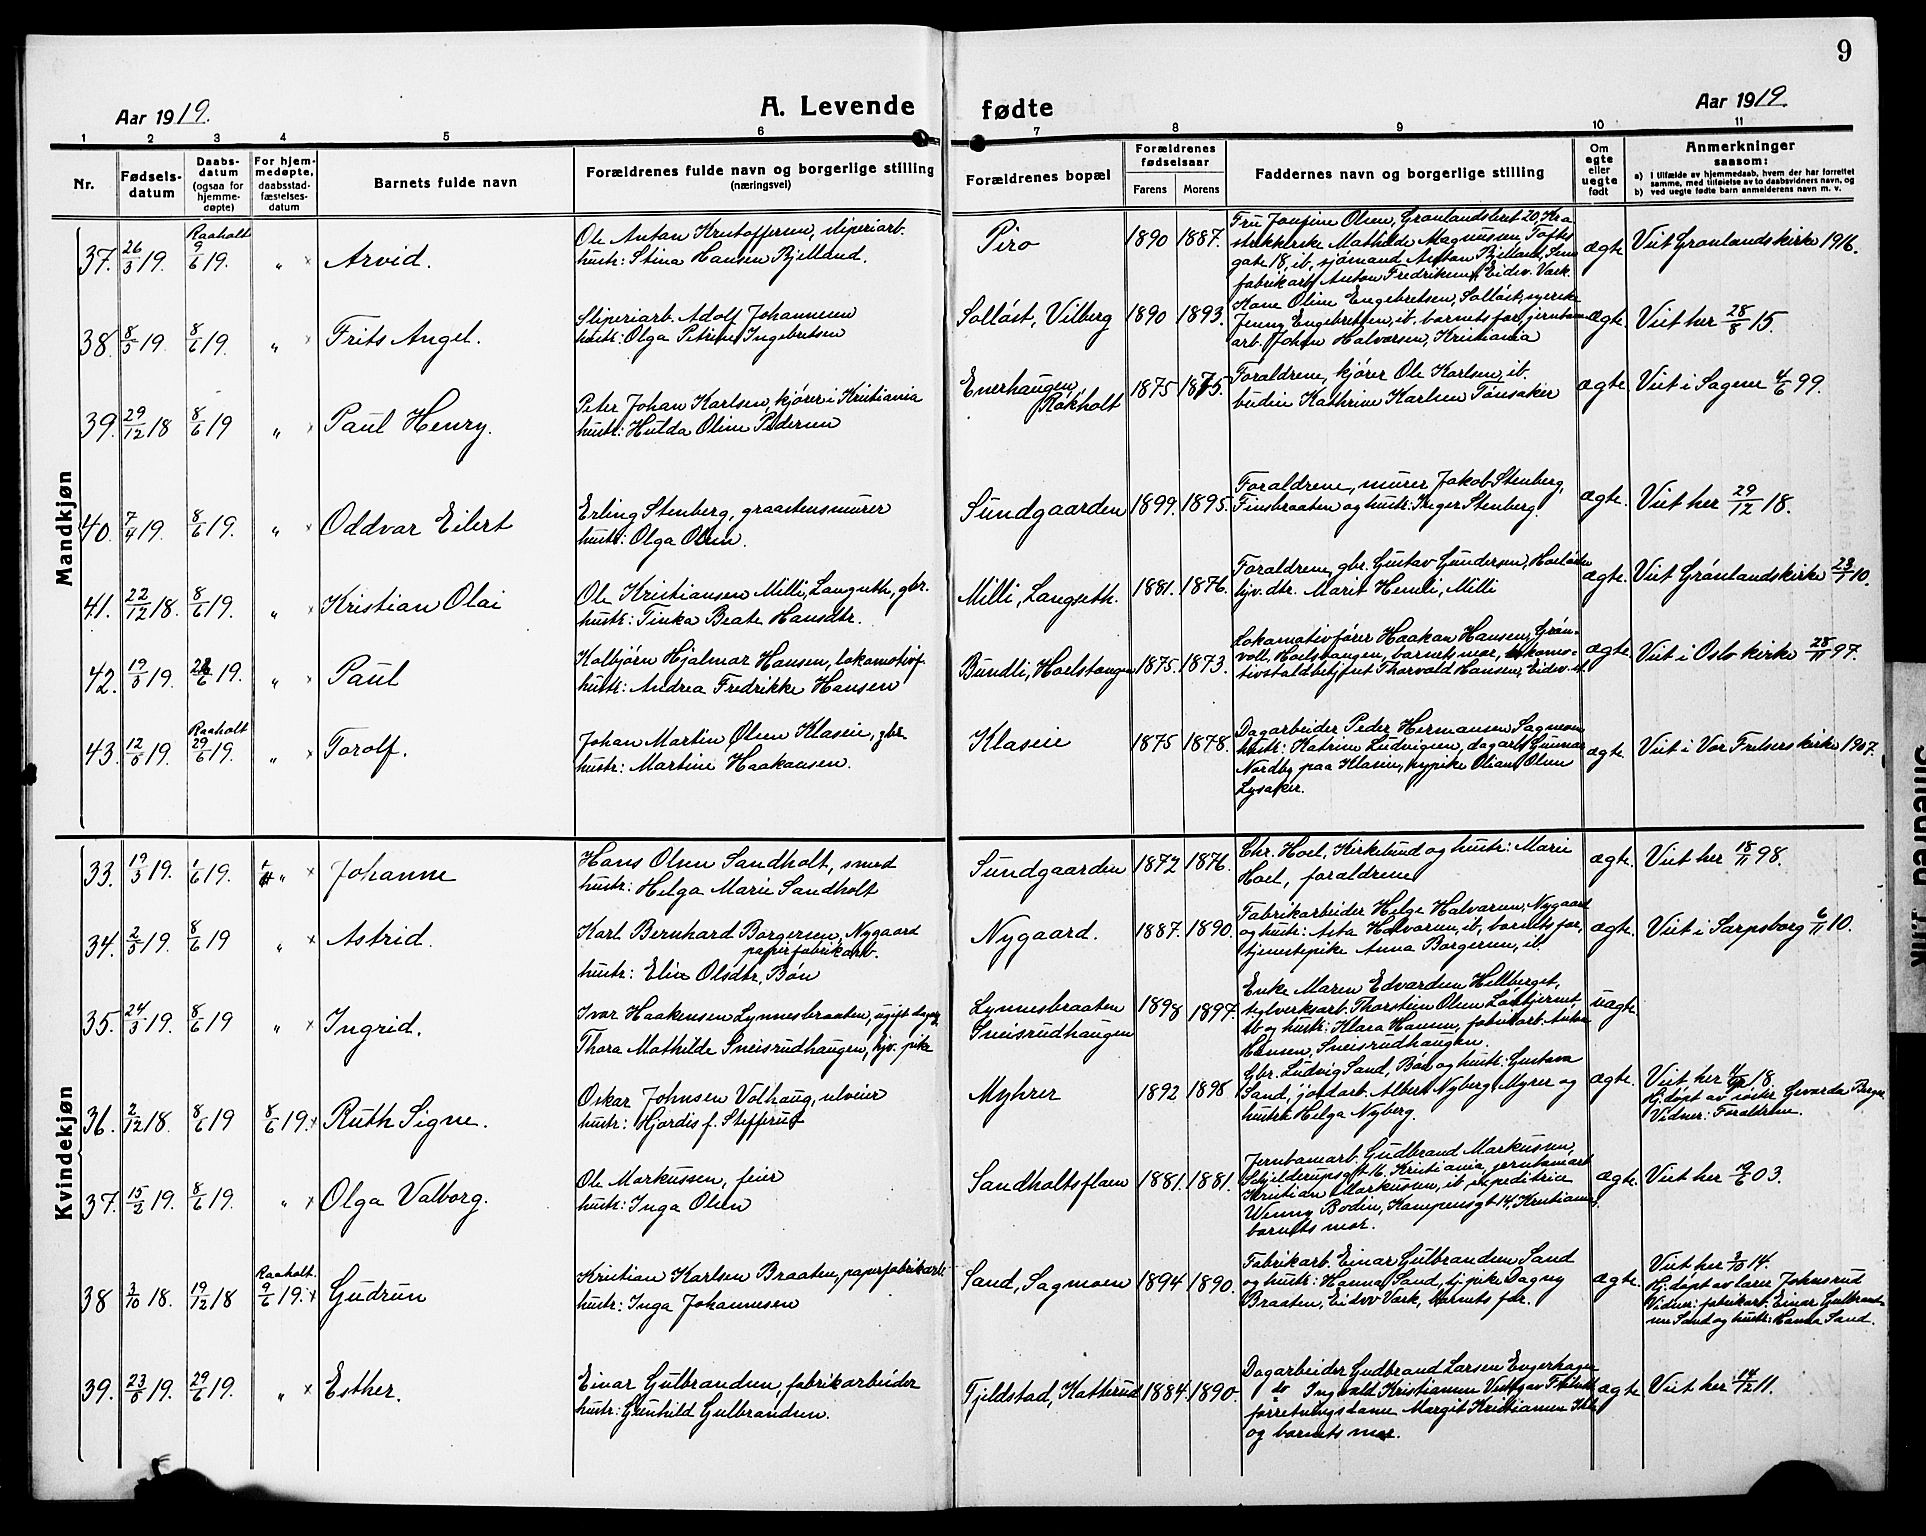 9
Aar 1919.
A. Levende fødte
Aar 1919.
1 2 3 4 5 6 7 8 9 10 11
Nr.
Fødselsdatum
Daabsdatum (ogsaa for hjemmedøpte)
For hjemmedøpte, daabsstadfæstelsesdatum
Barnets fulde navn
Forældrenes fulde navn og borgerlige stilling (næringsvei)
Forældrenes bopæl
Forældrenes fødselsaar
Farens
Morens
Faddernes navn og borgerlige stilling
Om egte eller uegte født
Anmerkninger saasom:
a) I tilfælde av hjemmedaab, hvem der har forrettet samme, med tilføielse av to daabsvidners navn, og
b) ved uegte fødte barn anmelderens navn m. v.
Mandkjøn
37. 26/3 19. Raaholt 9/6 19. " Arvid.
Ole Anton Kristoffersen, sliperiarb.
hustr: Stina Hansen Bjelland.
Piro 1890 1887.
Fru Josefine Olsen, Grønlandsleret 20, Kra
Mathilde Magnussen Toftes
gate 18, ib, sjømand Anton Bjelland,
fabrikarb. Anton Fredriksen, Eidsv. Værk.
ægte Viet Grønlands kirke 1916.
38. 8/3 19. 8/6 19. " Frits Angel.
Sliperiarb. Adolf Johannesen
hustr: Olga Petrine Ingebretsen
Solløst, Vilberg 1890 1893.
Kone Oline Engebretsen, Solløst, syerske
Jenny Engebretsen, ib. barnets far, jernbane
arb. Johan Halvorsen, Kristiania
ægte. Viet her 28/8 15.
39. 29/12 18 8/6 19 " Paul Henry.
Peter Johan Karlsen, kjører i Kristiania
hustr: Hulda Oline Pedersen
Enerhaugen, Råkholt 1875 1875.
Forældrene, kjører Ole Karlsen, ib.
budeie Kathrine Karlsen Tønsaker
ægte Viet i Sagene 4/6 99.
40. 7/4 19. 8/6 19. " Oddvar Eilert
Erling Stenberg, graastensmurer
hustr: Olga Olsen.
Sundgaarden 1899. 1895.
Forældrene, murer Jakob Stenberg,
Finsbraaten og hustr: Inger Stenberg.
ægte. Viet her 29/12 18.
41. 22/12 18. 8/6 19. " Kristian Olai
Ole Kristiansen Milli, Langseth, gbr.
hustr: Tinka Beate Hansdtr.
Milli, Langseth. 1881. 1876.
Forældrene, gbr. Gustav Gundersen,
tjv. dtr. Marit Hemli, Milli
ægte. Viet Grønlandskirke 23/1 10.
42. 19/3 19. 28/6 19. " Paul
Kolbjørn Hjalmar Hansen, lokomotivf.
hustr: Andrea Fredrikke Hansen
Bundli, Hoelstangen 1875. 1873.
Lokomotivfører Haakan Hansen, Grøn-
voll, Hoelstangen, barnets mor, lokomo-
tivstaldbetjent Thorvald Hansen, Eidsv. st.
ægte. Viet i Oslo kirke 28/11 97.
43. 12/5 19. Raaholt 29/6 19. " Torolf.
Johan Martin Olsen Klaseie, gbr.
hustr: Martine Haakansen.
Klaseie 1875 1878.
Dagarbeider Peder Hermansen Sagmoen
hustr: Katrine Ludvigsen, dagarb. Gunnar
Nordby paa Klaseie, typike Oliane Olsen
Lysaker.
ægte. Viet i Vor Frelsers kirke 1907.
Kvindekjøn
33. 19/3 19. 1/6 19. " Johanne
Hans Olsen Sandholt, smed
hustr: Helga Marie Sandholt
Sundgaarden 1872 1876.
Chr. Hoel, Kirkelund og hustr: Marie
Hoel, forældrene
ægte. Viet her 18/11 98.
34. 2/5 19. 8/6 19 " Astrid.
Karl Bernhard Borgersen, Nygaard
papirfabrikarb.
hustr: Elin Olsdtr, Bøn
Nygaard. 1887. 1890.
Fabrikarbeider Helge Halvorsen, Nygaard
og hustr: Asta Halvorsen, ib, barnets far,
tjenestepike Anna Borgersen, ib.
ægte. Viet i Sarpsborg 6/11 10.
35. 24/3 19. 8/6 19 " Ingrid.
Ivar Haakensen Lynnesbraaten, ugift dagarb.
Thora Mathilde Sneisrudhaugen, tjv. pike
Lynnesbraaten
Sneisrudhaugen 1898 1897.
Enke Maren Edvardsen Hillberget,
teglverksarb. Thorstein Olsen Løstjernet,
ib og hustr: Klara Hansen, fabrikarb. Anton
Hansen, Sneisrudhaugen.
uægte.
36. 2/12 18. 8/6 19 8/6 19. Ruth Signe.
Oskar Johnsen Volhaug,
hustr: Hjørdis f. Stefferud
Myhrer 1892 1898
Gbr. Ludvig Sand, Bøn og hustr: Gustava
Sand, jordarb. Albert Nyberg, Myrer og
hustru Helga Nyberg.
ægte. Viet her 18.
Hj. døpt av Gevarda Berger
Vidner: Forældrene.
37. 15/2 19. 8/6 19. " Olga Valborg.
Ole Markussen, feier
hustr: Inga Olsen
Sandholtsflaen 1881. 1881.
Jernbanearb. Gudbrand Markussen,
Schjelderupsgt 16, Kristiania, jernbanearb
Kristian Markussen, ib, expeditrice
Wenny Bodin, Kampensgt 14, Kristiania,
barnets mor.
ægte. Viet her 19/6 03.
38 3/10 18. 19/12 18 Raaholt. 9/6 19. Gudrun
Kristian Karlsen Braaten, papirfabrikarb.
hustr: Inga Johannesen
Sand, Sagmoen 1894 1890.
Fabrikarb. Einar Gulbrandsen Sand
og hustr: Hanna Sand, tj. pike Dagny
Braaten, Eidsv Værk, barnets far.
ægte. Viet her 3/10 14.
Hj. døpt av lærer Johnsrud
Vidner: fabrikarb. Einar Gulbrand-
sen Sand og hustr: Hanna Sand.
39. 23/5 19. 29/6 19. " Esther.
Einar Gulbrandsen, fabrikarbeider
hustr: Gunhild Gulbrandsen.
Fjeldstad, Katterud 1884. 1890.
Dagarbeider Gudbrand Larsen Engerhagen
do Ingvald Kristiansen
forretningsdame Margit Kristiansen
og barnets mor.
ægte. Viet her 17/12 11.